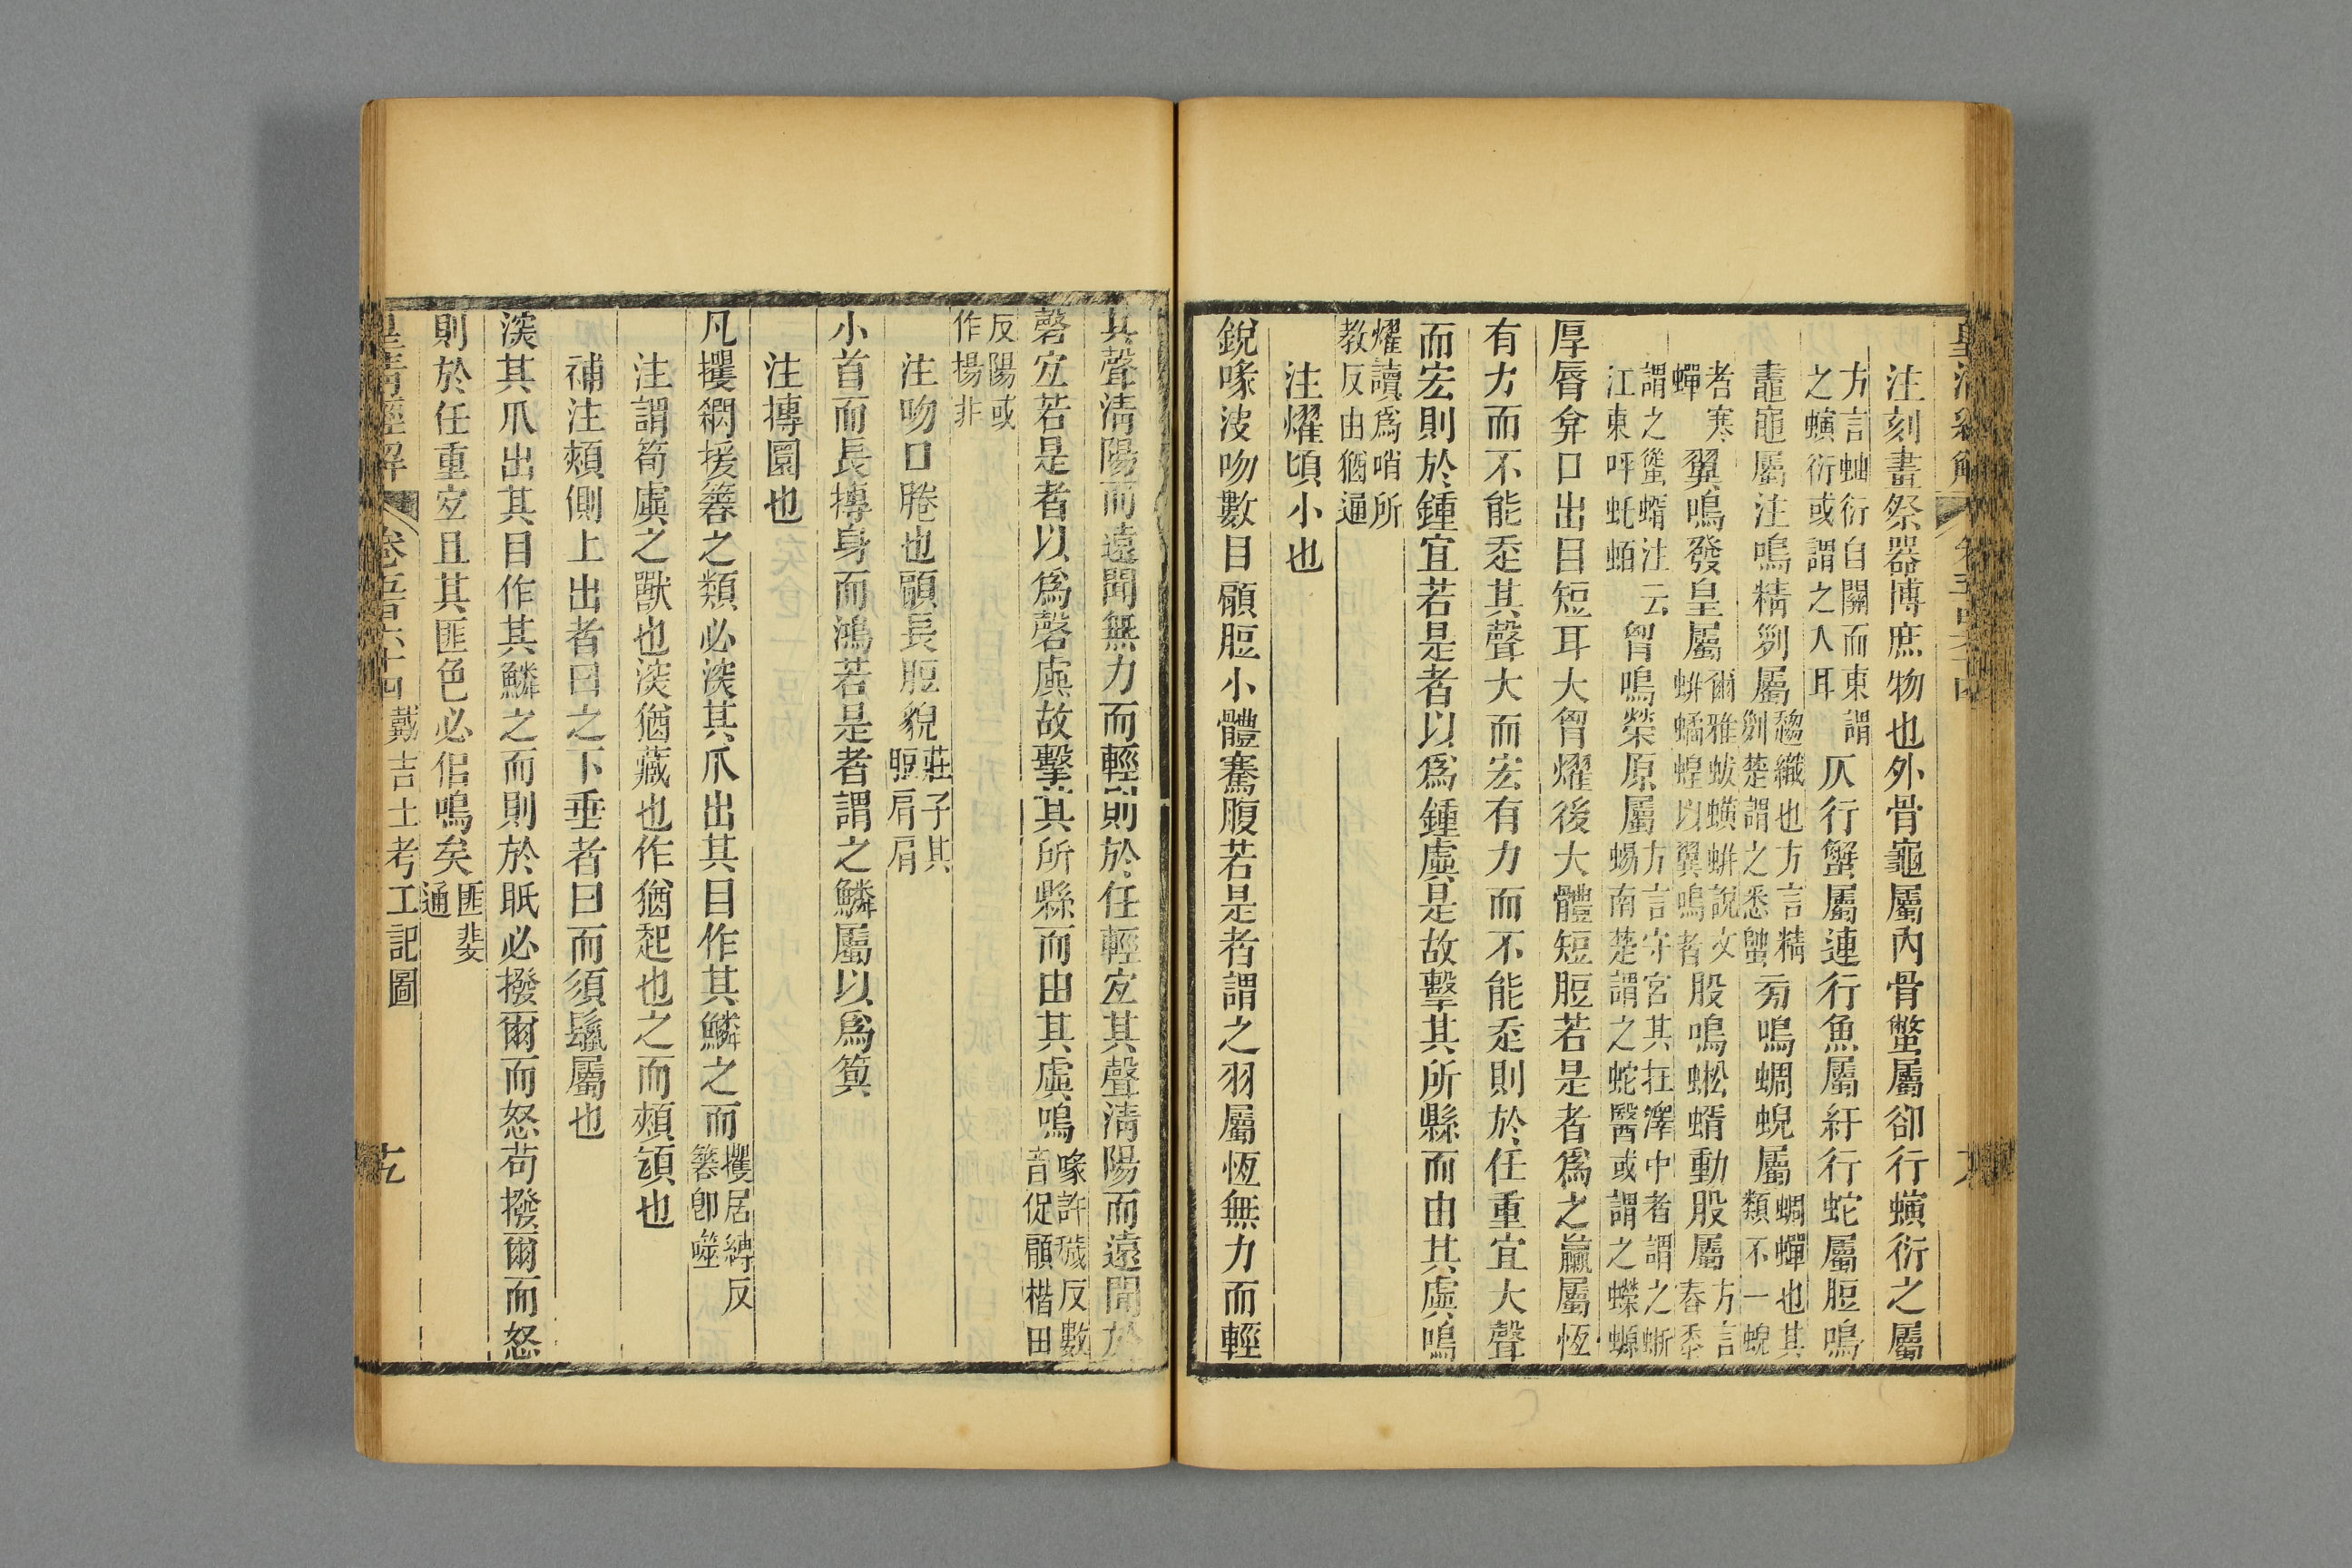 皇清經解 卷五百六十四
注刻畫祭器博庶物也外骨龜屬內骨鼈屬卻行螾衍之屬
方言蚰衍自關而東謂之螾衍或謂之入耳仄行蟹屬連行魚屬紆行蛇屬脰鳴
鼃黽屬注鳴精列屬趨織也方言精列楚謂之蟋蟀㫄鳴蜩蜺屬蜩蟬也其類不一蜺
者寒蟬翼鳴發皇屬爾雅蛂蟥蛢說文蛢蟥以翼鳴者股鳴蚣蝑動股屬方言舂黍
謂之蜙蝑注云江東呼虴蛨胷鳴榮原屬方言守宮其在澤中者謂之蜥蜴南楚謂之蛇醫或謂之蠑螈
厚脣弇口出目短耳大胷燿後大體短脰若是者爲之臝屬恆
有力而不能走其聲大而宏有力而不能走則於任重宜大聲
而宏則於鍾宜若是者以爲鍾虡是故擊其所縣而由其虡鳴
燿讀爲哨所教反由猶通
注燿頃小也
銳喙決吻數目顅脰小體騫腹若是者謂之羽屬恆無力而輕
其聲淸陽而遠聞無力而輕則於任輕宜其聲淸陽而遠聞於
磬宜若是者以爲磬虡故擊其所縣而由其虡鳴喙許穢反數音促顅楷田
反陽或作揚非
注吻口腃也顅長脰貌莊子其脰肩肩
小首而長摶身而鴻若是者謂之鱗屬以爲筍
注摶圜也
凡攫閷援簭之類必深其爪出其目作其鱗之而攫居縛反簭卽噬
注謂筍虡之獸也深猶藏也作猶起也之而頰䪴也
補注頰側上出者曰之下垂者曰而須鬣屬也
深其爪出其目作其鱗之而則於眡必撥爾而怒苟撥爾而怒
則於任重宜且其匪色必侣鳴矣匪斐通
皇淸經解 卷五百六十四 戴吉士考工記圖 十九